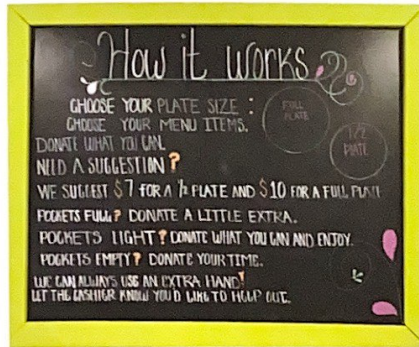 How it works
CHOOSE YOUR PLATE SIZE :
FULL PLATE
CHOOSE YOUR MENU ITEMS.
1/2 PLATE
DONATE WHAT YOU CAN.
NEED A SUGGESTION?
WE SUGGEST $7 FOR A ½ PLATE AND $10 FOR A FULL PLATE
POCKETS FULL? DONATE A LITTLE EXTRA.
POCKETS LIGHT? DONATE WHAT YOU CAN AND ENJOY.
POCKETS EMPTY? DONATE YOUR TIME.
WE CAN ALWAYS USE AN EXTRA HAND!
LET THE CASHIER KNOW YOU'D LIKE TO HELP OUT.